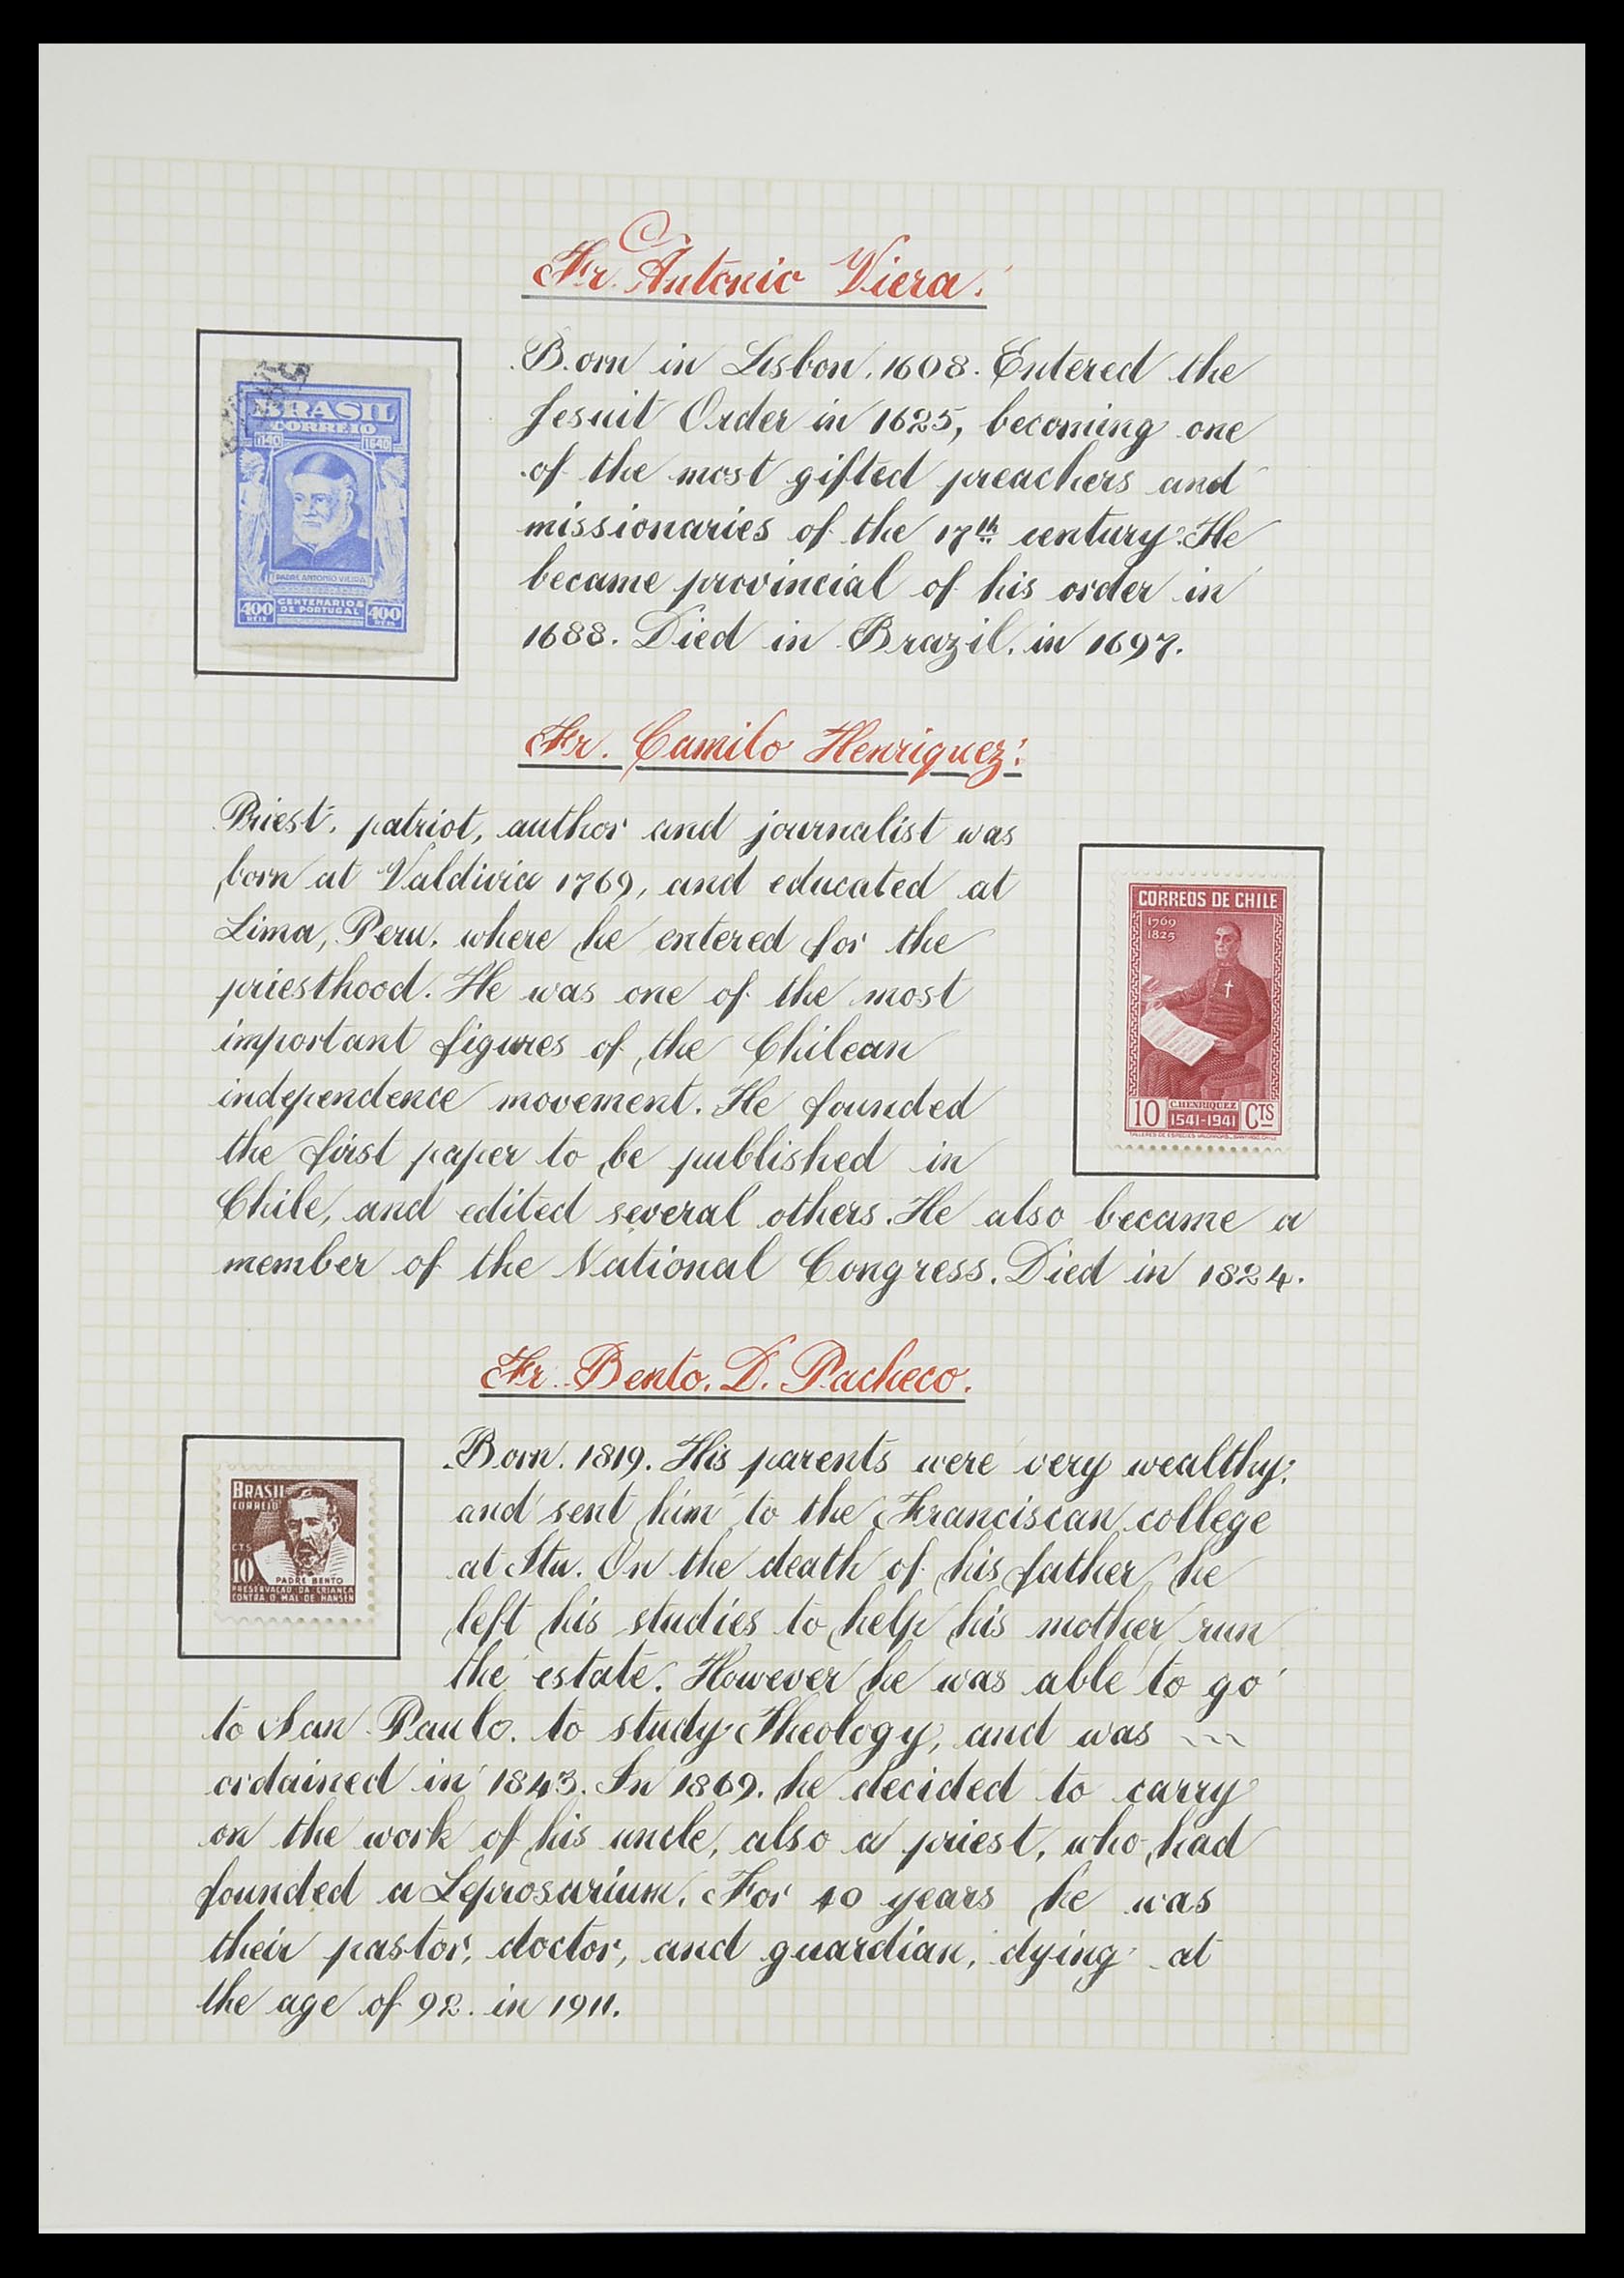 Fr. Antonio Viera.
BRASIL
CORREIO
1140 1640
PADRE ANTONIO VIEIRA
400 REIS CENTENARIOS DE PORTUGAL 400 REIS
Born in Lisbon, 1608. Entered the
Jesuit Order in 1625, becoming one
of the most gifted preachers and
missionaries of the 17th century. He
became provincial of his order in
1688. Died in Brazil, in 1697.
Fr. Camilo Henriquez:
Priest, patriot, author and journalist was
born at Valdivia 1769, and educated at
Lima, Peru, where he entered for the
priesthood. He was one of the most
important figures of the Chilean
independence movement. He founded
the first paper to be published in
Chile, and edited several others. He also became a
member of the National Congress. Died in 1824.
CORREOS DE CHILE
1769
1825
C. HENRIQUEZ
10 1541-1941 CTS
Fr. Bento. D. Pacheco.
BRASIL
CORREIO
CTS
10 PADRE BENTO
PRESERVAÇÃO DA CRIANÇA
CONTRA O MAL DE HANSEN
Born. 1819. His parents were very wealthy;
and sent him to the Franciscan college
at Itu. On the death of his father, he
left his studies to help his mother run
the estate. However he was able to go
to San Paulo. to study Theology, and was ~~~
ordained in 1843. In 1869. he decided to carry
on the work of his uncle, also a priest, who had
founded a Leprosarium. For 40 years he was
their pastor, doctor, and guardian, dying at
the age of 92. in 1911.